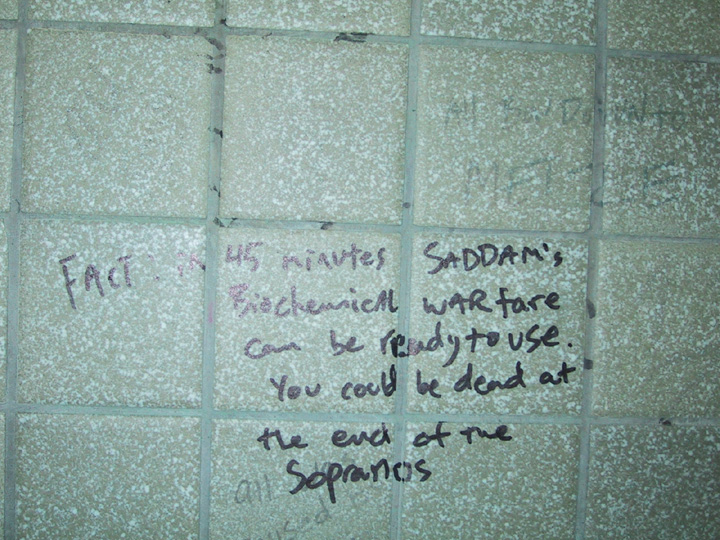 All
MET
FACT: in 45 minutes SADDAM's
Biochemical WARfare
can be ready to use.
You could be dead at
the end of the
Sopranos
all